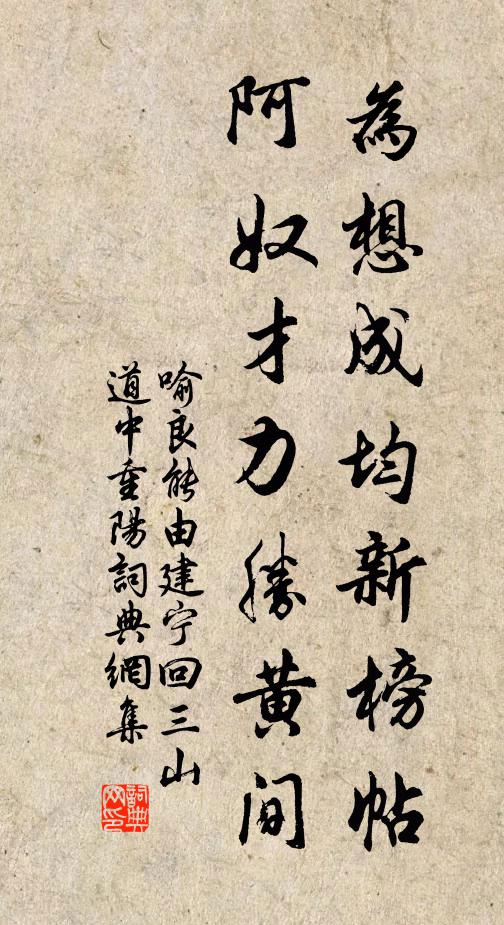 為想成均新榜帖
阿奴才力勝黃间
喻良能由建宁回三山
道中重陽詞典網集
詞典網印